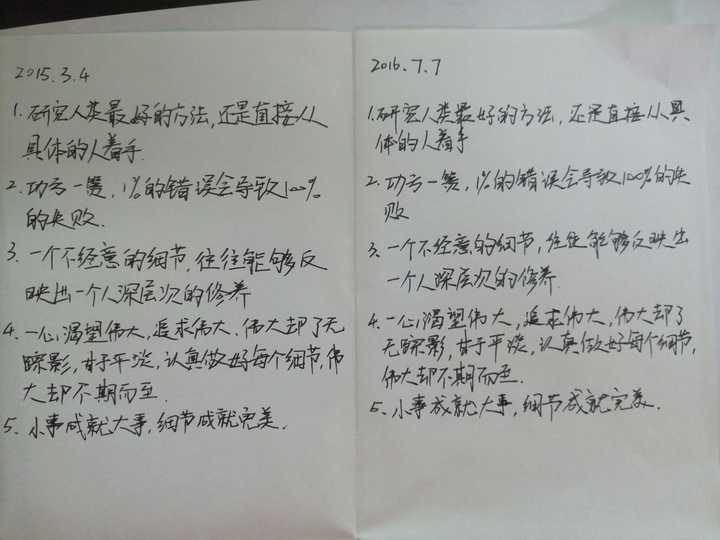 2015.3.4
1. 研究人类最好的方法,还是直接从
具体的人着手.
2. 功亏一篑,1%的错误会导致100%
的失败.
3. 一个不经意的细节,往往能够反
映出一个人深层次的修养
4. 一心渴望伟大,追求伟大、伟大却了无
踪影,甘于平淡,认真做好每个细节,伟
大却不期而至.
5. 小事成就大事,细节成就完美.
2016.7.7
1. 研究人类最好的方法,还是直接从具
体的人着手
2. 功亏一篑,1%的错误会导致100%的失
败
3. 一个不经意的细节,往往能够反映出
一个人深层次的修养.
4. 一心渴望伟大,追求伟大,伟大却了
无踪影,甘于平淡,认真做好每个细节,
伟大却不期而至.
5. 小事成就大事,细节成就完美.